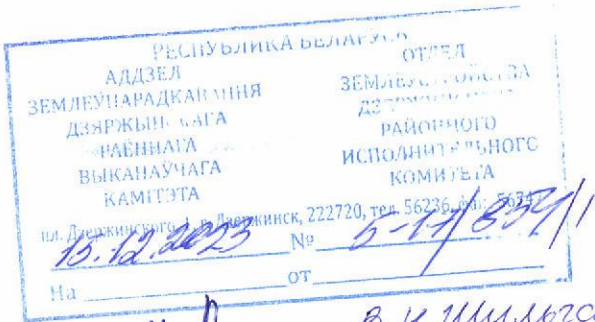 РЕСПУБЛИКА БЕЛАРУСЬ
АДДЗЕЛ
ЗЕМЛЕЎПАРАДКАВАННЯ
ДЗЯРЖЫНСКАГА
РАЁННАГА
ВЫКАНАЎЧАГА
КАМІТЭТА
ОТДЕЛ
ЗЕМЛЕУСТРОЙСТВА
РАЙОННОГО
ИСПОЛНИТЕЛЬНОГО
КОМИТЕТА
пл. Дзержинского 1, г. Дзержинск, 222720, тел. 56236,
15.12.2023 №
На от